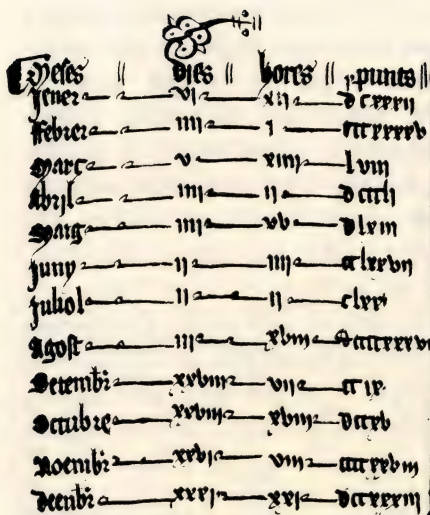 Meses || dies || hores || punts ||
Jener vi xii dcxxxii
Febrer iiii i
Març v xiiii lviii
Abril iiii ii dcccli
Maig iiii xv dlxiii
Juny ii iiii cclxxvii
Juliol ii ii clxxi
Agost iii xviii
Setembr xxviii vii ccix
Octubre xxviii xviii dccxv
Noembr xxvi viii ccccxxviii
Deembr xxxi xxi dccxxxiii